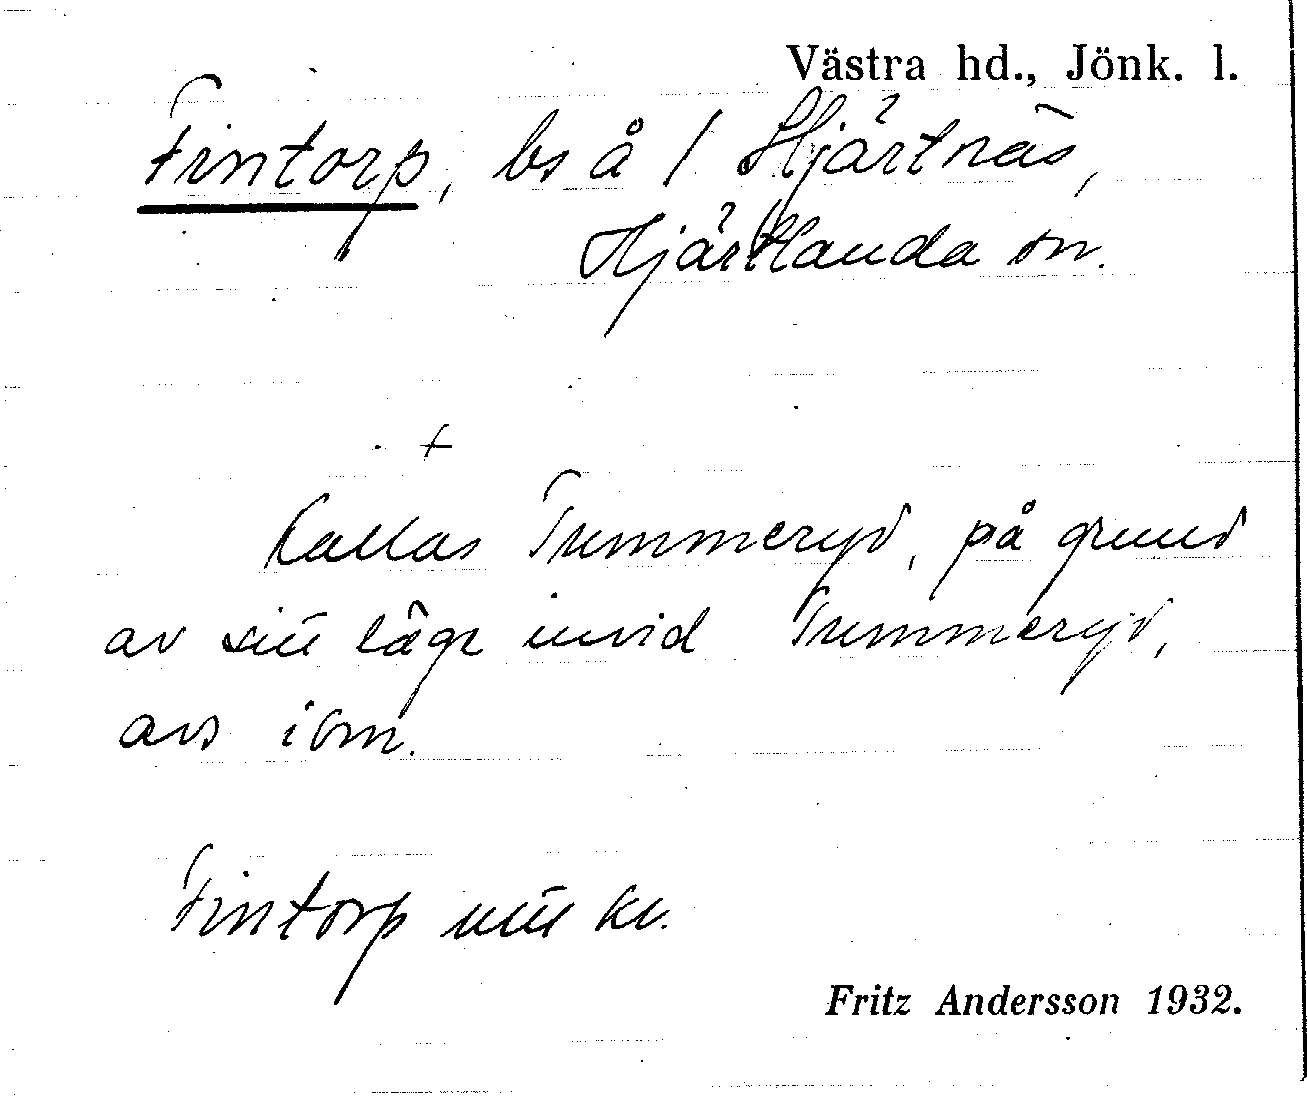 Västra hd., Jönk. l.
Fintorp, bs å / Hjärtnäs,
Hjärtlanda sn.
+
Kallas Trummeryd, på grund
av sitt läge invid Trummeryd,
avs i sn.
Fintorp kv.
Fritz Andersson 1932.